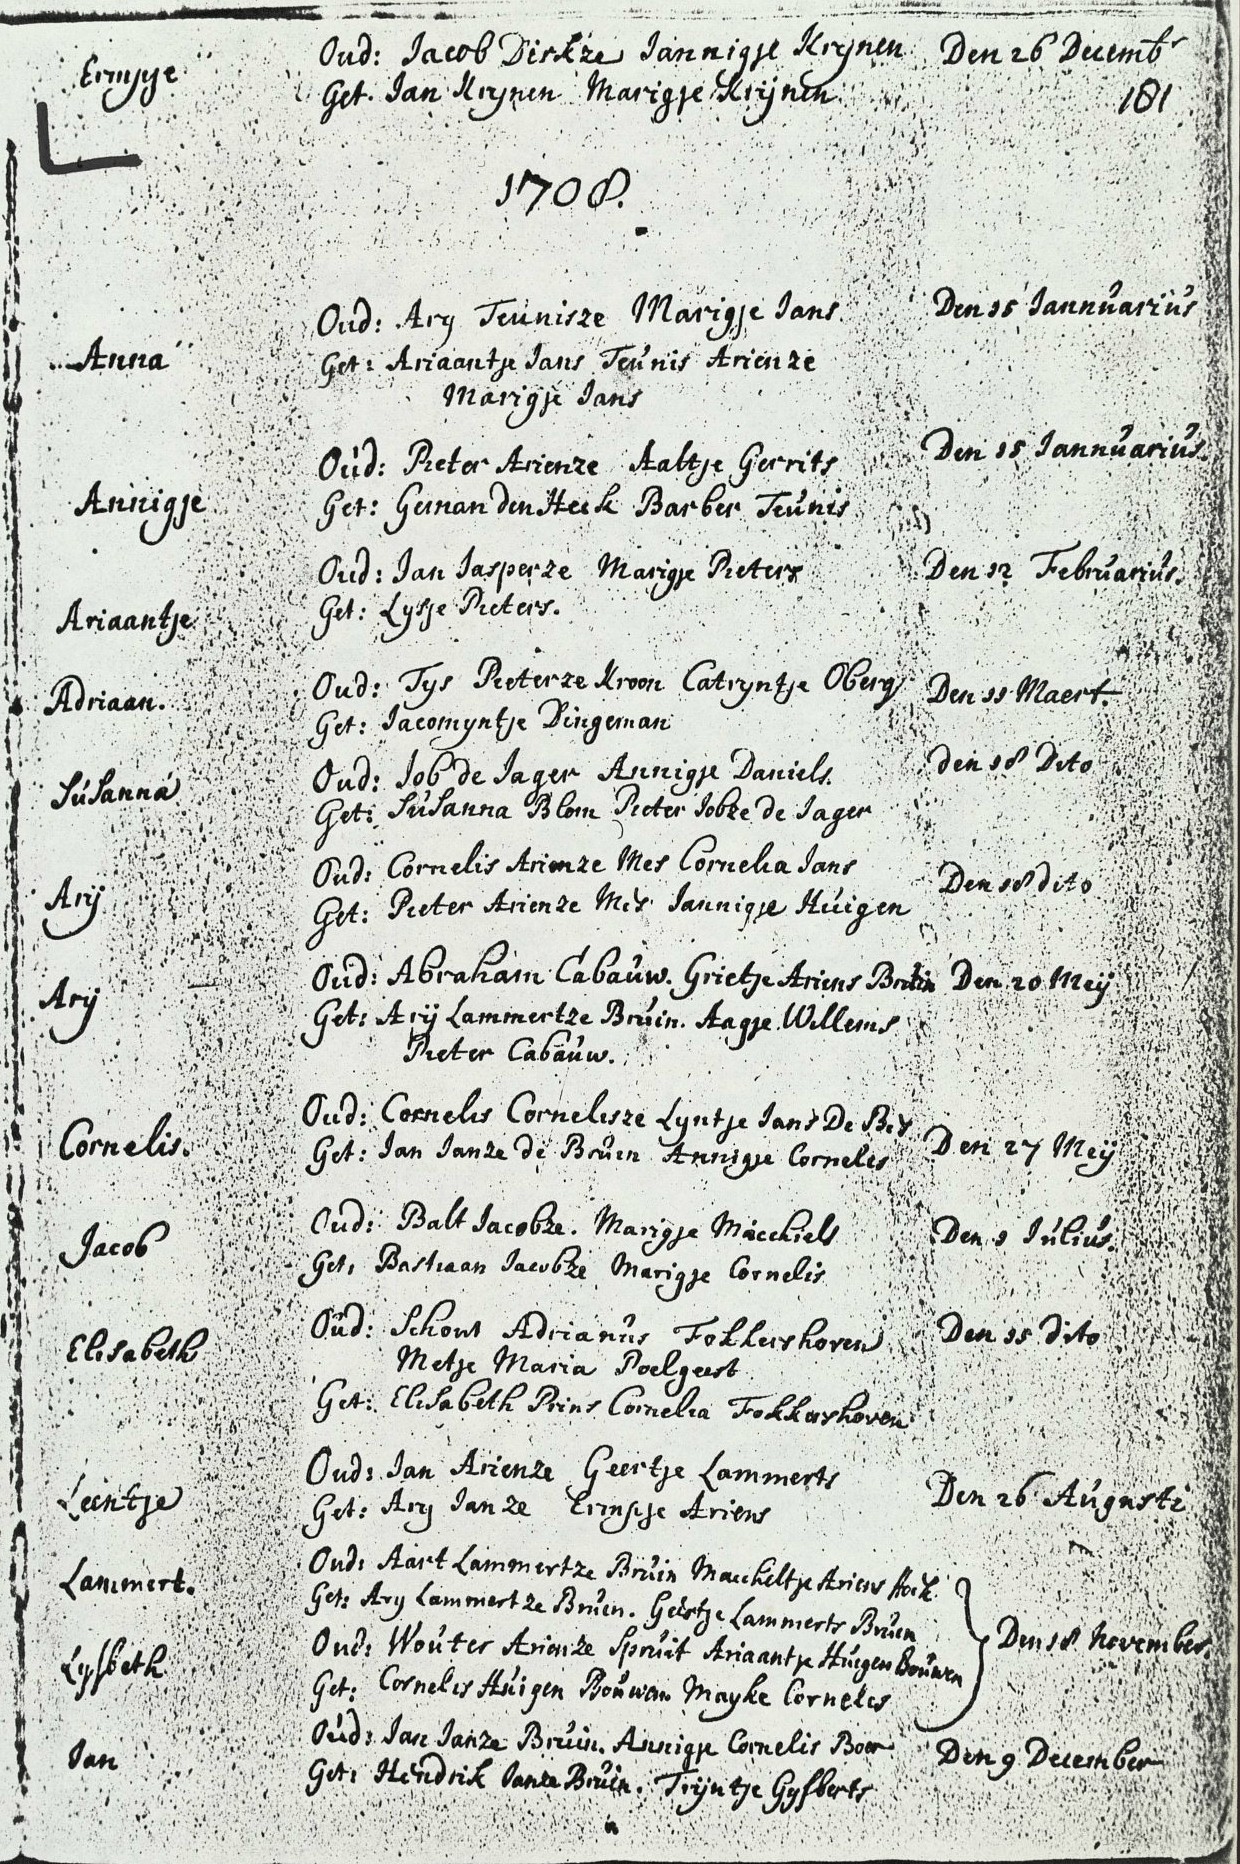 Ermpje Oud: Iacob Dirkze Iannigje Krijnen Den 26 Decembr
Get. Ian Krijnen Marigje Krijnen
181
1708.
Oud: Ary Teunisze Marigje Ians. Den 15 Iannuarius
Anna Get: Ariaantje Ians Teunis Arienze
Marigje Ians
Oud: Pieter Arienze Aaltje Gerrits Den 15 Iannuarius.
Annigje Get: den Heck Barber Teunis
Oud: Ian Iasperze Marigje Pieters Den 12 Februarius.
Ariaantje Get: Lysje Pieters.
Adriaan. Oud: Tys Pieterze Kroon Catryntje Oberg Den 11 Maert.
Get: Iacomyntje Dingeman
Susanna Oud: Iob de Iager Annigje Daniels. den 18 Dito
Get: Susanna Blom Pieter Iobze de Iager
Arij Oud: Cornelis Arienze Mes Cornelia Ians Den 18 dito
Get: Pieter Arienze Mes Iannigje Huigen
Arij Oud: Abraham Cabauw. Grietje Ariens Bruin Den 20 Meij
Get: Arij Lammertze Bruin. Aagje Willems
Pieter Cabauw.
Cornelis. Oud: Cornelis Cornelisze Lyntje Ians De Den 27 Meij
Get: Ian Ianze de Bruin Annigje Cornelis
Jacob Oud: Balt Iacobze. Marigje Macchiels Den 1 Iulius.
Get: Bastiaan Iacobze Marigje Cornelis
Elisabeth Oud: Schout Adrianus Fokkershoven Den 15 dito
Metje Maria Poelgeest
Get: Elisabeth Prins Cornelia Fokkershoven
Leentje Oud: Ian Arienze Geertje Lammerts Den 26 Augusti
Get: Ary Ianze Ermpje Ariens
Lammert. Oud: Aart Lammertze Bruin Maccheltje Ariens Hoek
Get: Ary Lammertze Bruin. Geertje Lammerts Bruin
Lysbeth Oud: Wouter Arienze Spruit Ariaantje Huigen Bouwen Den 18 November.
Get: Cornelis Huigen Bouwen Mayke Cornelis
Ian Oud: Ian Ianze Bruin. Annigje Cornelis Boer Den 9 December
Get: Hendrik Ianze Bruin. Trijntje Gysberts